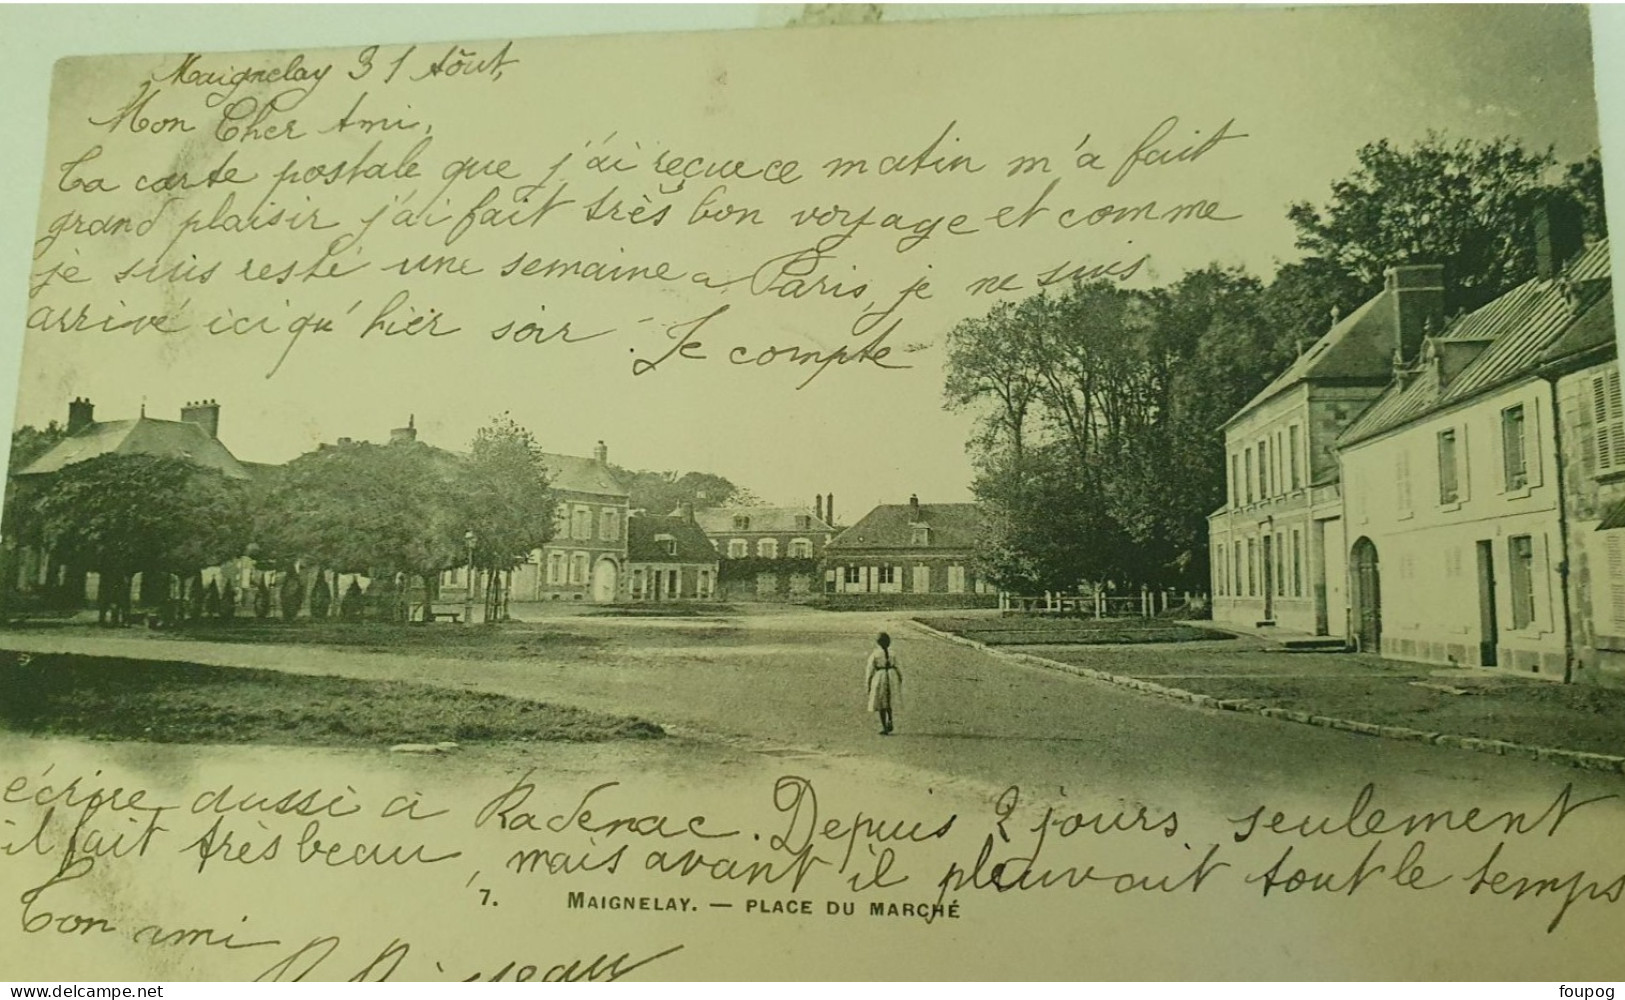 Maignelay 31 Aôut,
Mon Cher Ami,
Ta carte postale que j'ai reçue ce matin m'a fait
grand plaisir j'ai fait très bon voyage et comme
je suis resté une semaine a Paris, je ne suis
arrivé ici qu'hier soir. Je compte
écrire aussi à Radenac. Depuis 2 jours seulement
il fait très beau, mais avant il pleuvait tout le temps
7. MAIGNELAY. — PLACE DU MARCHÉ
Ton ami
foupog